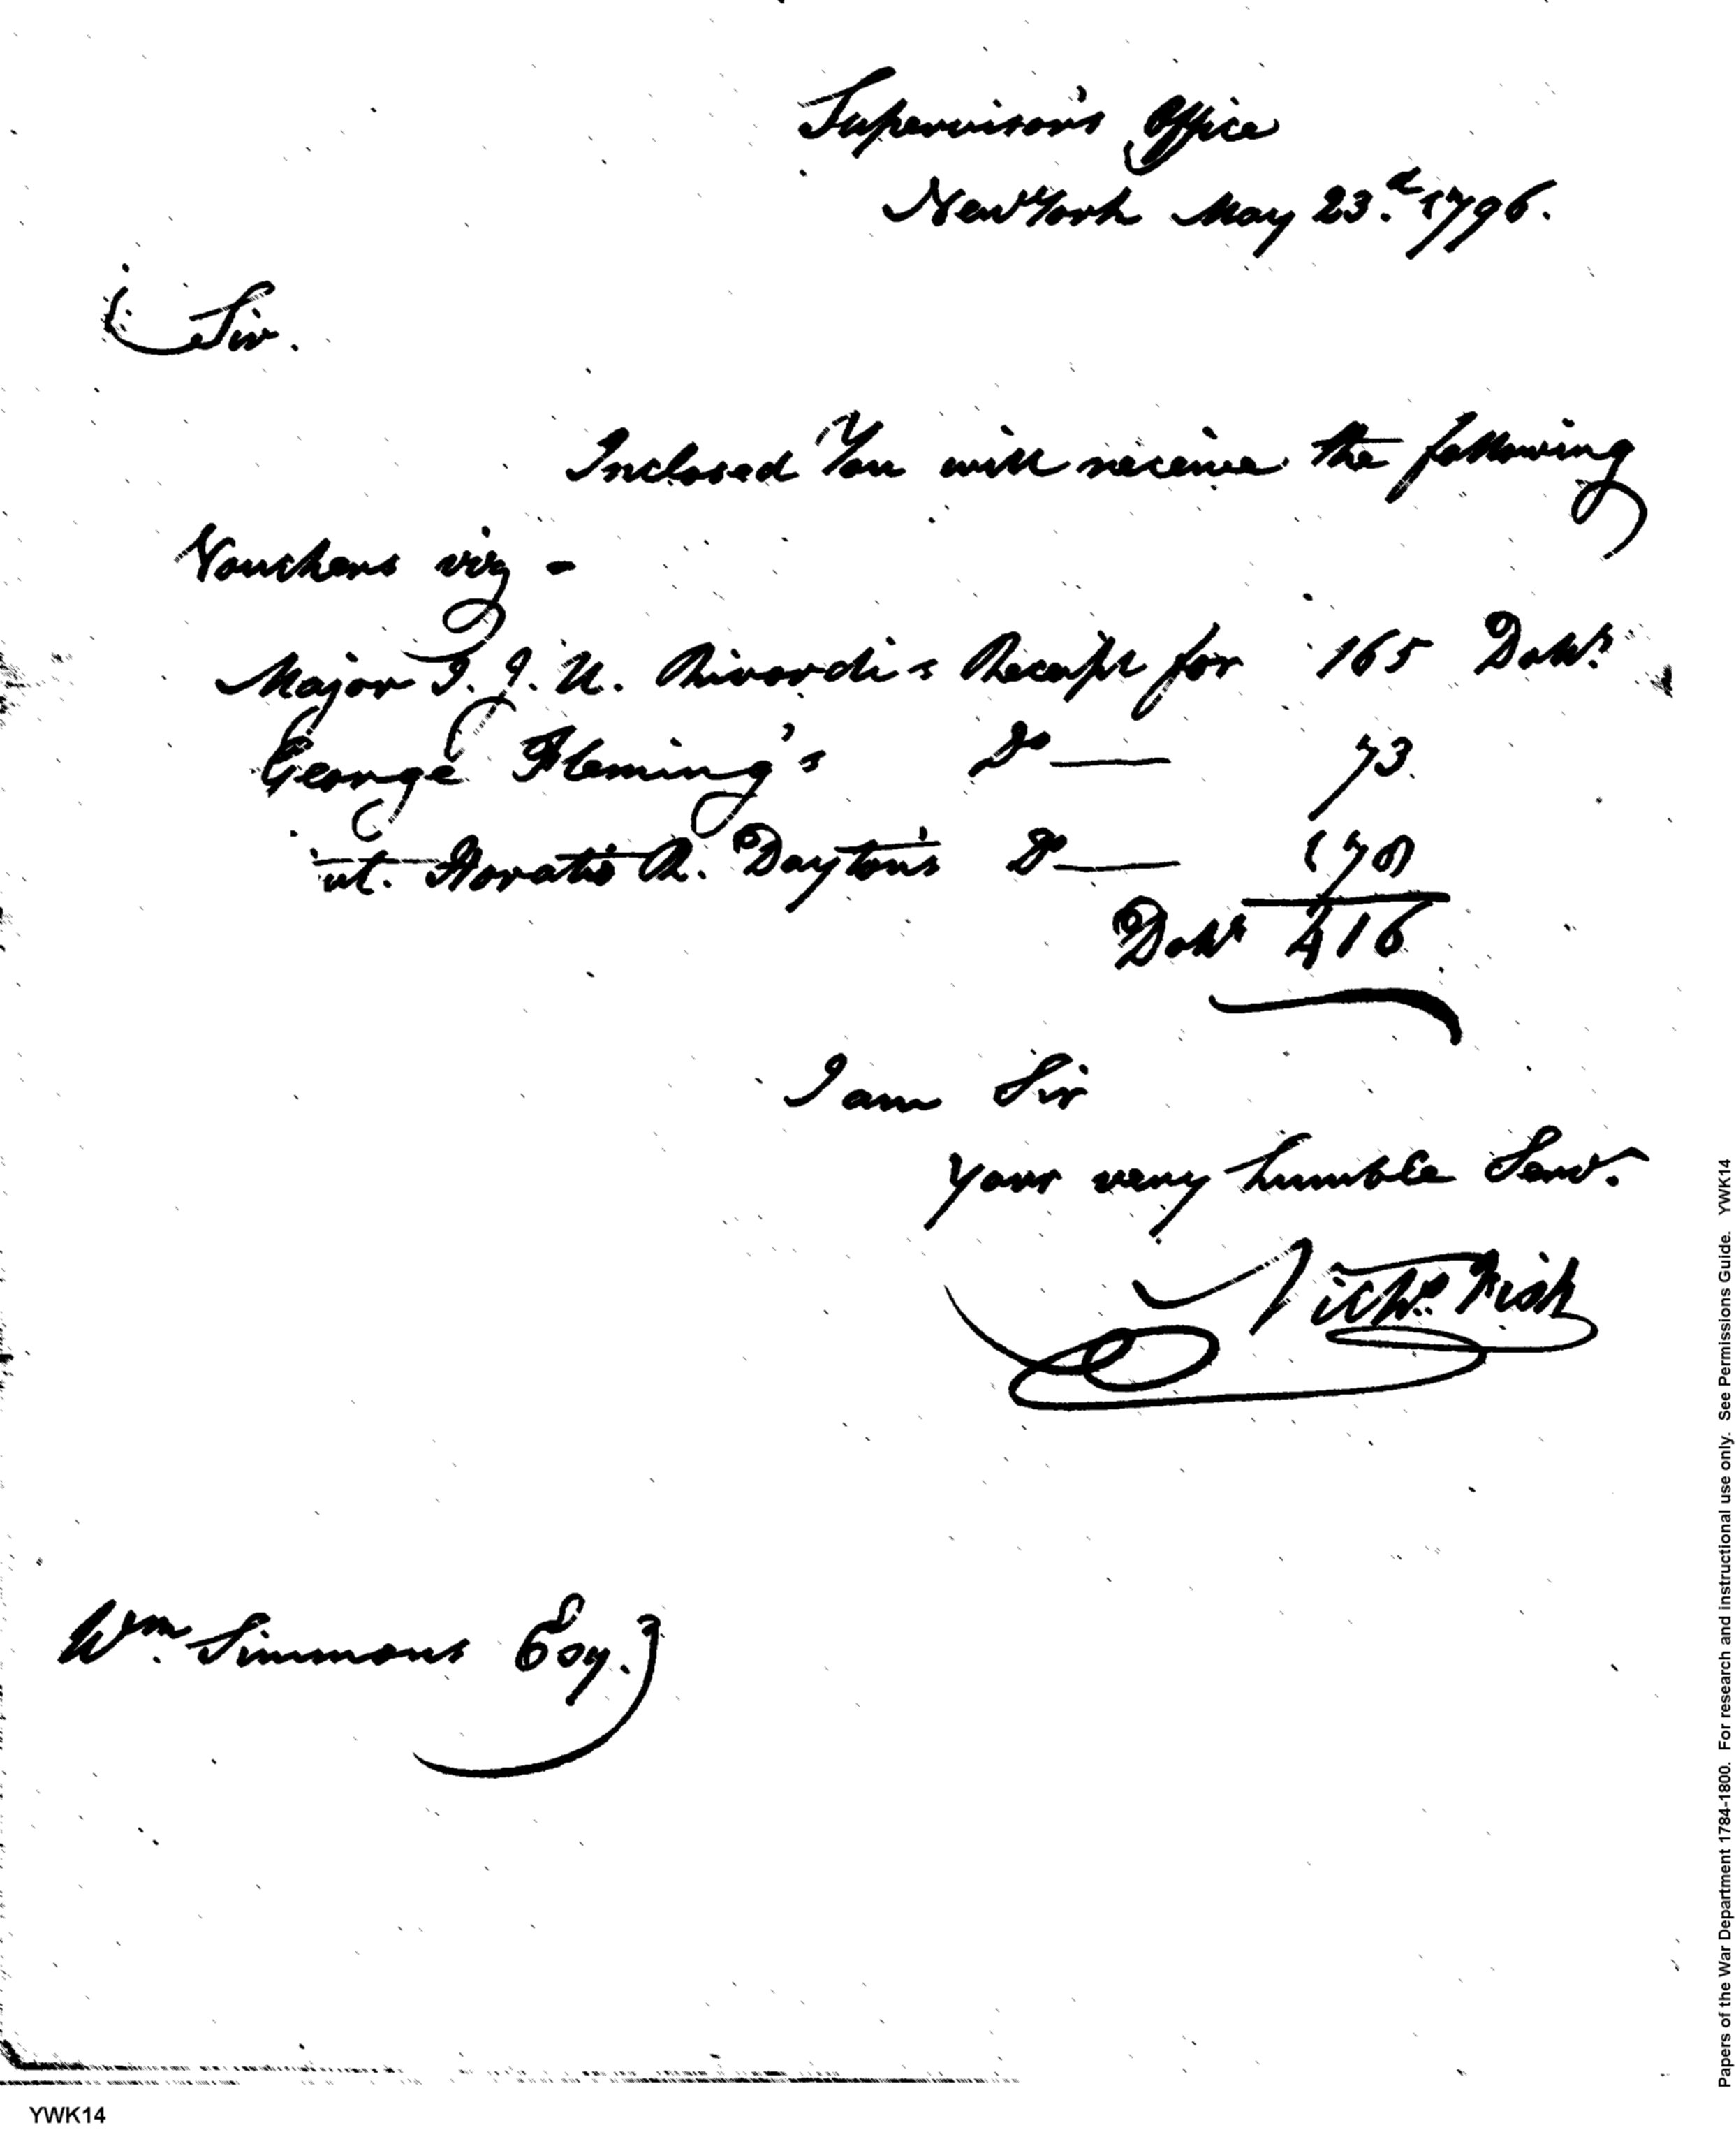 Supervisor's Office
New York May 23.d 1796.
Sir.
Inclosed You will receive the following
Vouchers viz -
Major J. J. U. Rivardi's Receipt for 165 Dolls.
George Fleming's Do — 73.
Lt. Horatio R. Dayton's Do — 178
Dolls 416
I am Sir
your very humble Servt.
Nichs. Fish
Wm. Simmons Esq.
Papers of the War Department 1784-1800. For research and instructional use only. See Permissions Guide. YWK14
YWK14